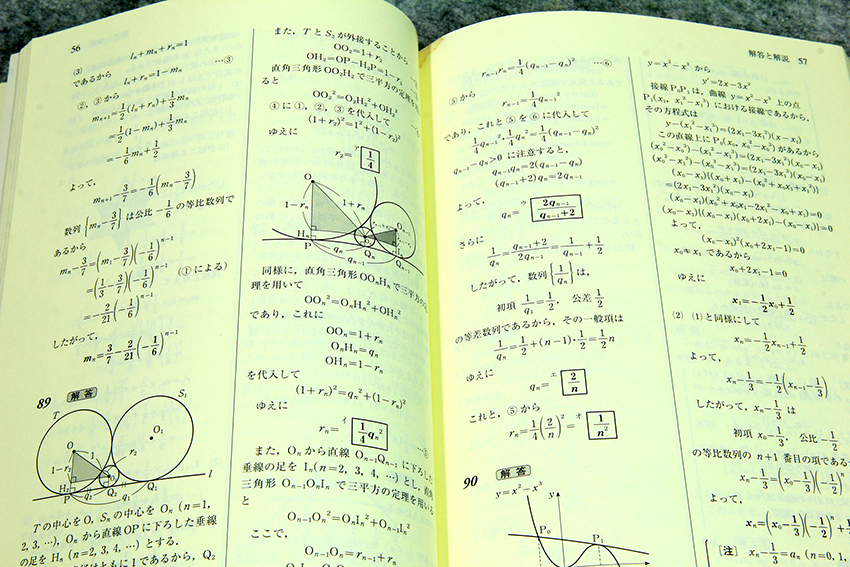 56
(3) lₙ+mₙ+rₙ=1
であるから lₙ+rₙ=1-mₙ …③
②, ③から
mₙ₊₁=1/2(lₙ+rₙ)+1/3mₙ
=1/2(1-mₙ)+1/3mₙ
=-1/6mₙ+1/2
よって,
mₙ₊₁-3/7=-1/6(mₙ-3/7)
数列{mₙ-3/7}は公比-1/6の等比数列で
あるから
mₙ-3/7=(m₁-3/7)(-1/6)ⁿ⁻¹
=(1/3-3/7)(-1/6)ⁿ⁻¹ (①による)
=-2/21(-1/6)ⁿ⁻¹
したがって,
mₙ=3/7-2/21(-1/6)ⁿ⁻¹
89 解答
T S₁
O O₁
1 r₂
1-r₂
H₂ l
P q₂ Q₂ q₂ Q₁
Tの中心をO, Sₙの中心をOₙ (n=1,
2, 3, …), Oₙから直線OPに下ろした垂線
の足をHₙ (n=2, 3, 4, …) とする。
はともに1であるから, Q₂
また, TとS₂が外接することから
OO₂=1+r₂
OH₂=OP-H₂P=1-r₂
直角三角形OO₂H₂で三平方の定理を
ると
OO₂²=O₂H₂²+OH₂²
④に①, ②, ③を代入して
(1+r₂)²=1²+(1-r₂)²
ゆえに
r₂=ア 1/4
O
1-rₙ 1
Oₙ₋₁
Hₙ
P qₙ Qₙ Qₙ₋₁
qₙ₋₁
同様に, 直角三角形OOₙHₙで三平方の定
理を用いて
OOₙ²=OₙHₙ²+OHₙ²
であり, これに
OOₙ=1+rₙ
OₙHₙ=qₙ
OHₙ=1-rₙ
を代入して
(1+rₙ)²=qₙ²+(1-rₙ)²
ゆえに
rₙ=イ 1/4qₙ² …⑤
また, Oₙから直線Oₙ₋₁Qₙ₋₁に下ろした
垂線の足をIₙ(n=2, 3, 4, …)とし, 直角
三角形Oₙ₋₁OₙIₙで三平方の定理を用いる
と
Oₙ₋₁Oₙ²=OₙIₙ²+Oₙ₋₁Iₙ²
ここで,
Oₙ₋₁Oₙ=rₙ₋₁+rₙ
解答と解説 57
rₙ₋₁rₙ=1/4(qₙ₋₁-qₙ)² …⑥
⑤から
rₙ₋₁=1/4qₙ₋₁²
であり, これと⑤を⑥に代入して
1/4qₙ₋₁²・1/4qₙ²=1/4(qₙ₋₁-qₙ)²
qₙ₋₁-qₙ>0に注意すると,
qₙ₋₁qₙ=2(qₙ₋₁-qₙ)
(qₙ₋₁+2)qₙ=2qₙ₋₁
よって,
qₙ=ウ 2qₙ₋₁/(qₙ₋₁+2)
さらに
1/qₙ=(qₙ₋₁+2)/2qₙ₋₁=1/qₙ₋₁+1/2
したがって, 数列{1/qₙ}は,
初項 1/q₁=1/2, 公差 1/2
の等差数列であるから, その一般項は
1/qₙ=1/2+(n-1)・1/2=1/2n
ゆえに
qₙ=エ 2/n
これと, ⑤から
rₙ=1/4(2/n)²=オ 1/n²
90 解答
y=x²-x³
y
P₀ P₁
y=x²-x³ から
y'=2x-3x²
接線P₀P₁は, 曲線 y=x²-x³ 上の点
P₁(x₁, x₁²-x₁³)における接線であるから,
その方程式は
y-(x₁²-x₁³)=(2x₁-3x₁²)(x-x₁)
この直線上にP₀(x₀, x₀²-x₀³)があるから
(x₀²-x₀³)-(x₁²-x₁³)=(2x₁-3x₁²)(x₀-x₁)
(x₀²-x₁²)-(x₀³-x₁³)=(2x₁-3x₁²)(x₀-x₁)
(x₀-x₁){(x₀+x₁)-(x₀²+x₀x₁+x₁²)}
=(2x₁-3x₁²)(x₀-x₁)
(x₀-x₁)(x₀²+x₀x₁-2x₁²-x₀+x₁)=0
(x₀-x₁){(x₀-x₁)(x₀+2x₁)-(x₀-x₁)}=0
よって,
(x₀-x₁)²(x₀+2x₁-1)=0
x₀≠x₁であるから
x₀+2x₁-1=0
ゆえに
x₁=-1/2x₀+1/2
(2) (1)と同様にして
xₙ=-1/2xₙ₋₁+1/2
よって,
xₙ-1/3=-1/2(xₙ₋₁-1/3)
したがって, xₙ-1/3は
初項 x₀-1/3, 公比 -1/2
の等比数列の n+1 番目の項である
xₙ-1/3=(x₀-1/3)(-1/2)ⁿ
よって,
xₙ=(x₀-1/3)(-1/2)ⁿ+
[注] xₙ-1/3=aₙ (n=0, 1,